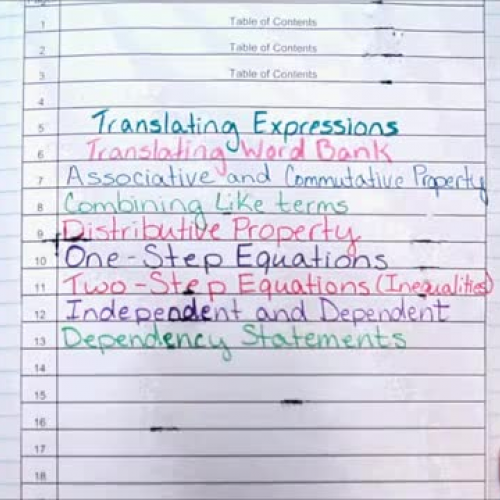 1 Table of Contents
2 Table of Contents
3 Table of Contents
4
5 Translating Expressions
6 Translating Word Bank
7 Associative and Commutative Property
8 Combining Like terms
9 Distributive Property
10 One-Step Equations
11 Two-Step Equations (Inequalities)
12 Independent and Dependent
13 Dependency Statements
14
15
16
17
18